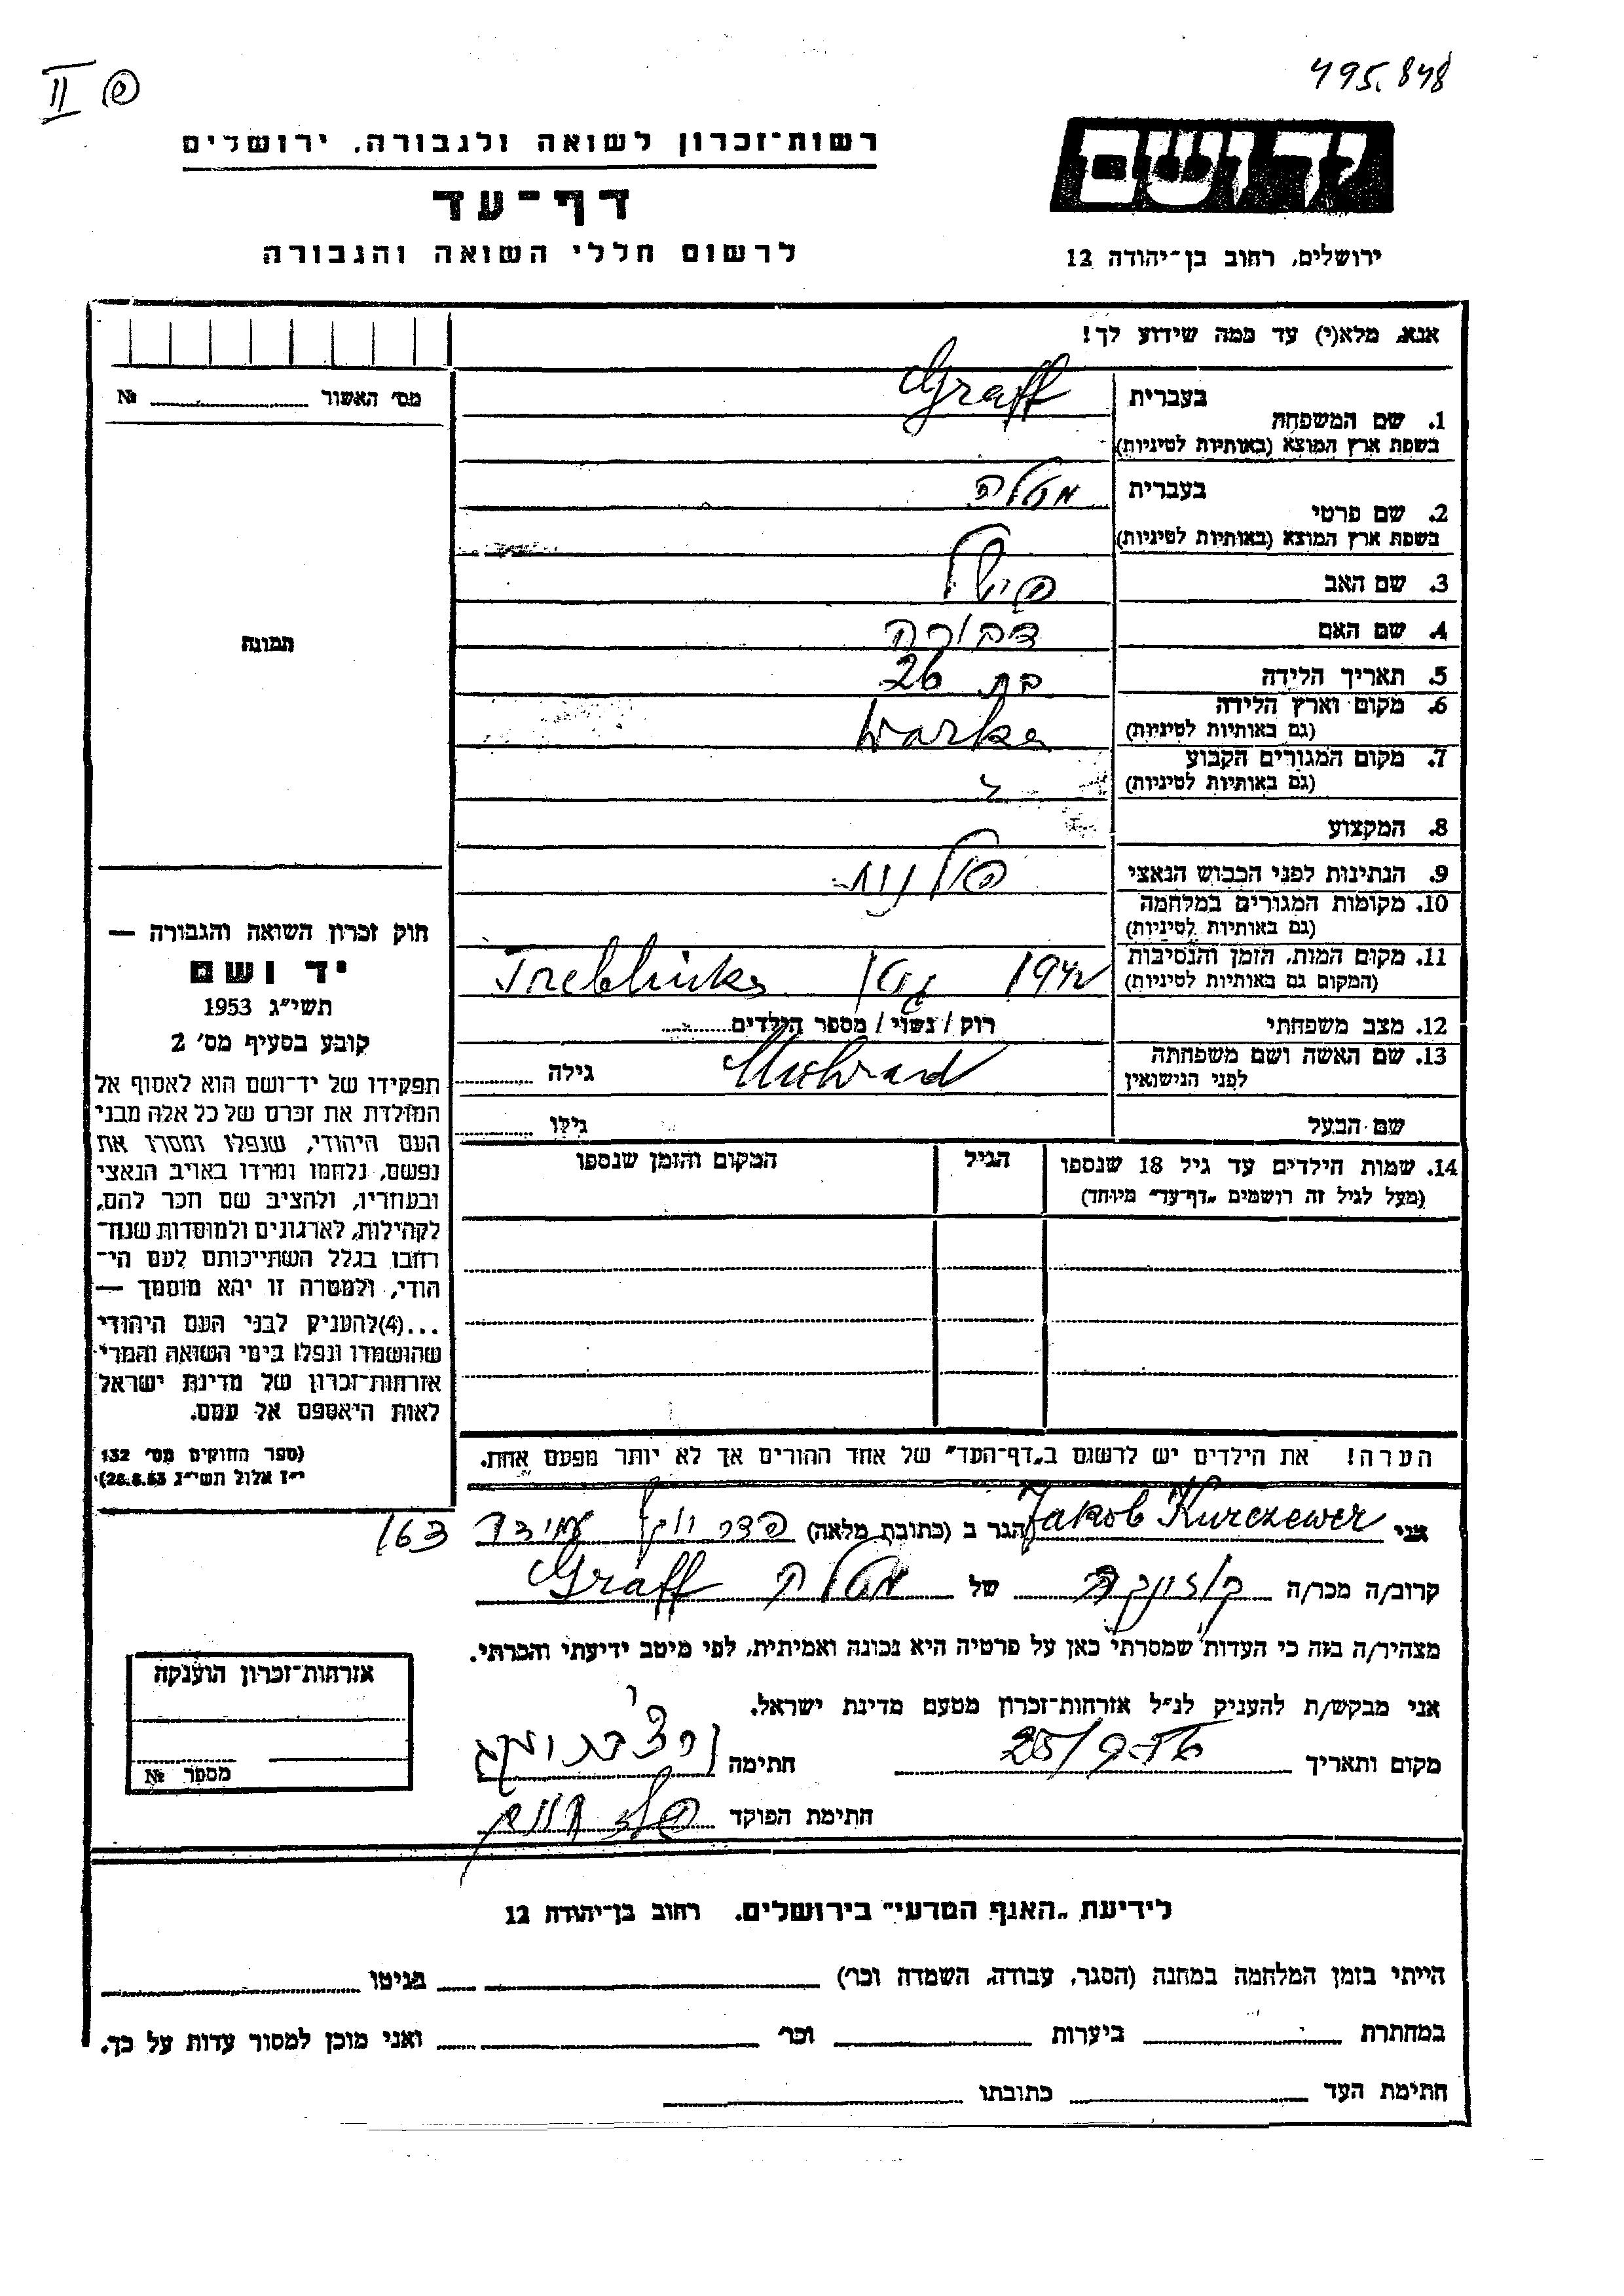 II פ
495.848
יד ושם
ירושלים, רחוב בן־יהודה 12
רשות־זכרון לשואה ולגבורה, ירושלים
דף־עד
לרשום חללי השואה והגבורה
אנא, מלא(י) עד כמה שידוע לך!
מס׳ האשור № 
1. שם המשפחה בעברית Graff
בשפת ארץ המוצא (באותיות לטיניות)
2. שם פרטי בעברית מטלה
בשפת ארץ המוצא (באותיות לטיניות)
3. שם האב פישל
4. שם האם דבורה
5. תאריך הלידה בת 26
6. מקום וארץ הלידה Warka
(גם באותיות לטיניות)
7. מקום המגורים הקבוע
(גם באותיות לטיניות)
8. המקצוע
9. הנתינות לפני הכבוש הנאצי פולנית
10. מקומות המגורים במלחמה
(גם באותיות לטיניות)
11. מקום המות, הזמן והנסיבות 1942 Treblinka
(המקום גם באותיות לטיניות)
12. מצב משפחתי רוק / נשוי / מספר הילדים
13. שם האשה ושם משפחתה
לפני הנישואין גילה
שם הבעל גילו
14. שמות הילדים עד גיל 18 שנספו הגיל המקום והזמן שנספו
(מעל לגיל זה רושמים „דף־עד״ מיוחד)
הערה! את הילדים יש לרשום ב„דף־העד״ של אחד ההורים אך לא יותר מפעם אחת.
תמונה
חוק זכרון השואה והגבורה —
יד ושם
תשי״ג 1953
קובע בסעיף מס׳ 2
תפקידו של יד־ושם הוא לאסוף אל
המולדת את זכרם של כל אלה מבני
העם היהודי, שנפלו ומסרו את
נפשם, נלחמו ומרדו באויב הנאצי
ובעוזריו, ולהציב שם וזכר להם,
לקהילות, לארגונים ולמוסדות שנח־
רבו בגלל השתייכותם לעם הי־
הודי, ולמטרה זו יהא מוסמך —
...(4) להעניק לבני העם היהודי
שהושמדו ונפלו בימי השואה והמרי
אזרחות־זכרון של מדינת ישראל
לאות היאספם אל עמם.
(ספר החוקים מס׳ 132
י״ז אלול תשי״ג 28.8.53)
אני Jakob Kurczewer הגר ב (כתובת מלאה) עמידר 163
קרוב/ה מכר/ה של Graff
מצהיר/ה בזה כי העדות שמסרתי כאן על פרטיה היא נכונה ואמיתית, לפי מיטב ידיעתי והכרתי.
אני מבקש/ת להעניק לנ״ל אזרחות־זכרון מטעם מדינת ישראל.
מקום ותאריך 25/ חתימה
חתימת הפוקד
אזרחות־זכרון הוענקה
מספר №
לידיעת „האגף המדעי״ בירושלים, רחוב בן־יהודה 12
הייתי בזמן המלחמה במחנה (הסגר, עבודה, השמדה וכו׳) בגיטו
במחתרת ביערות וכו׳ ואני מוכן למסור עדות על כך.
חתימת העד כתובתו